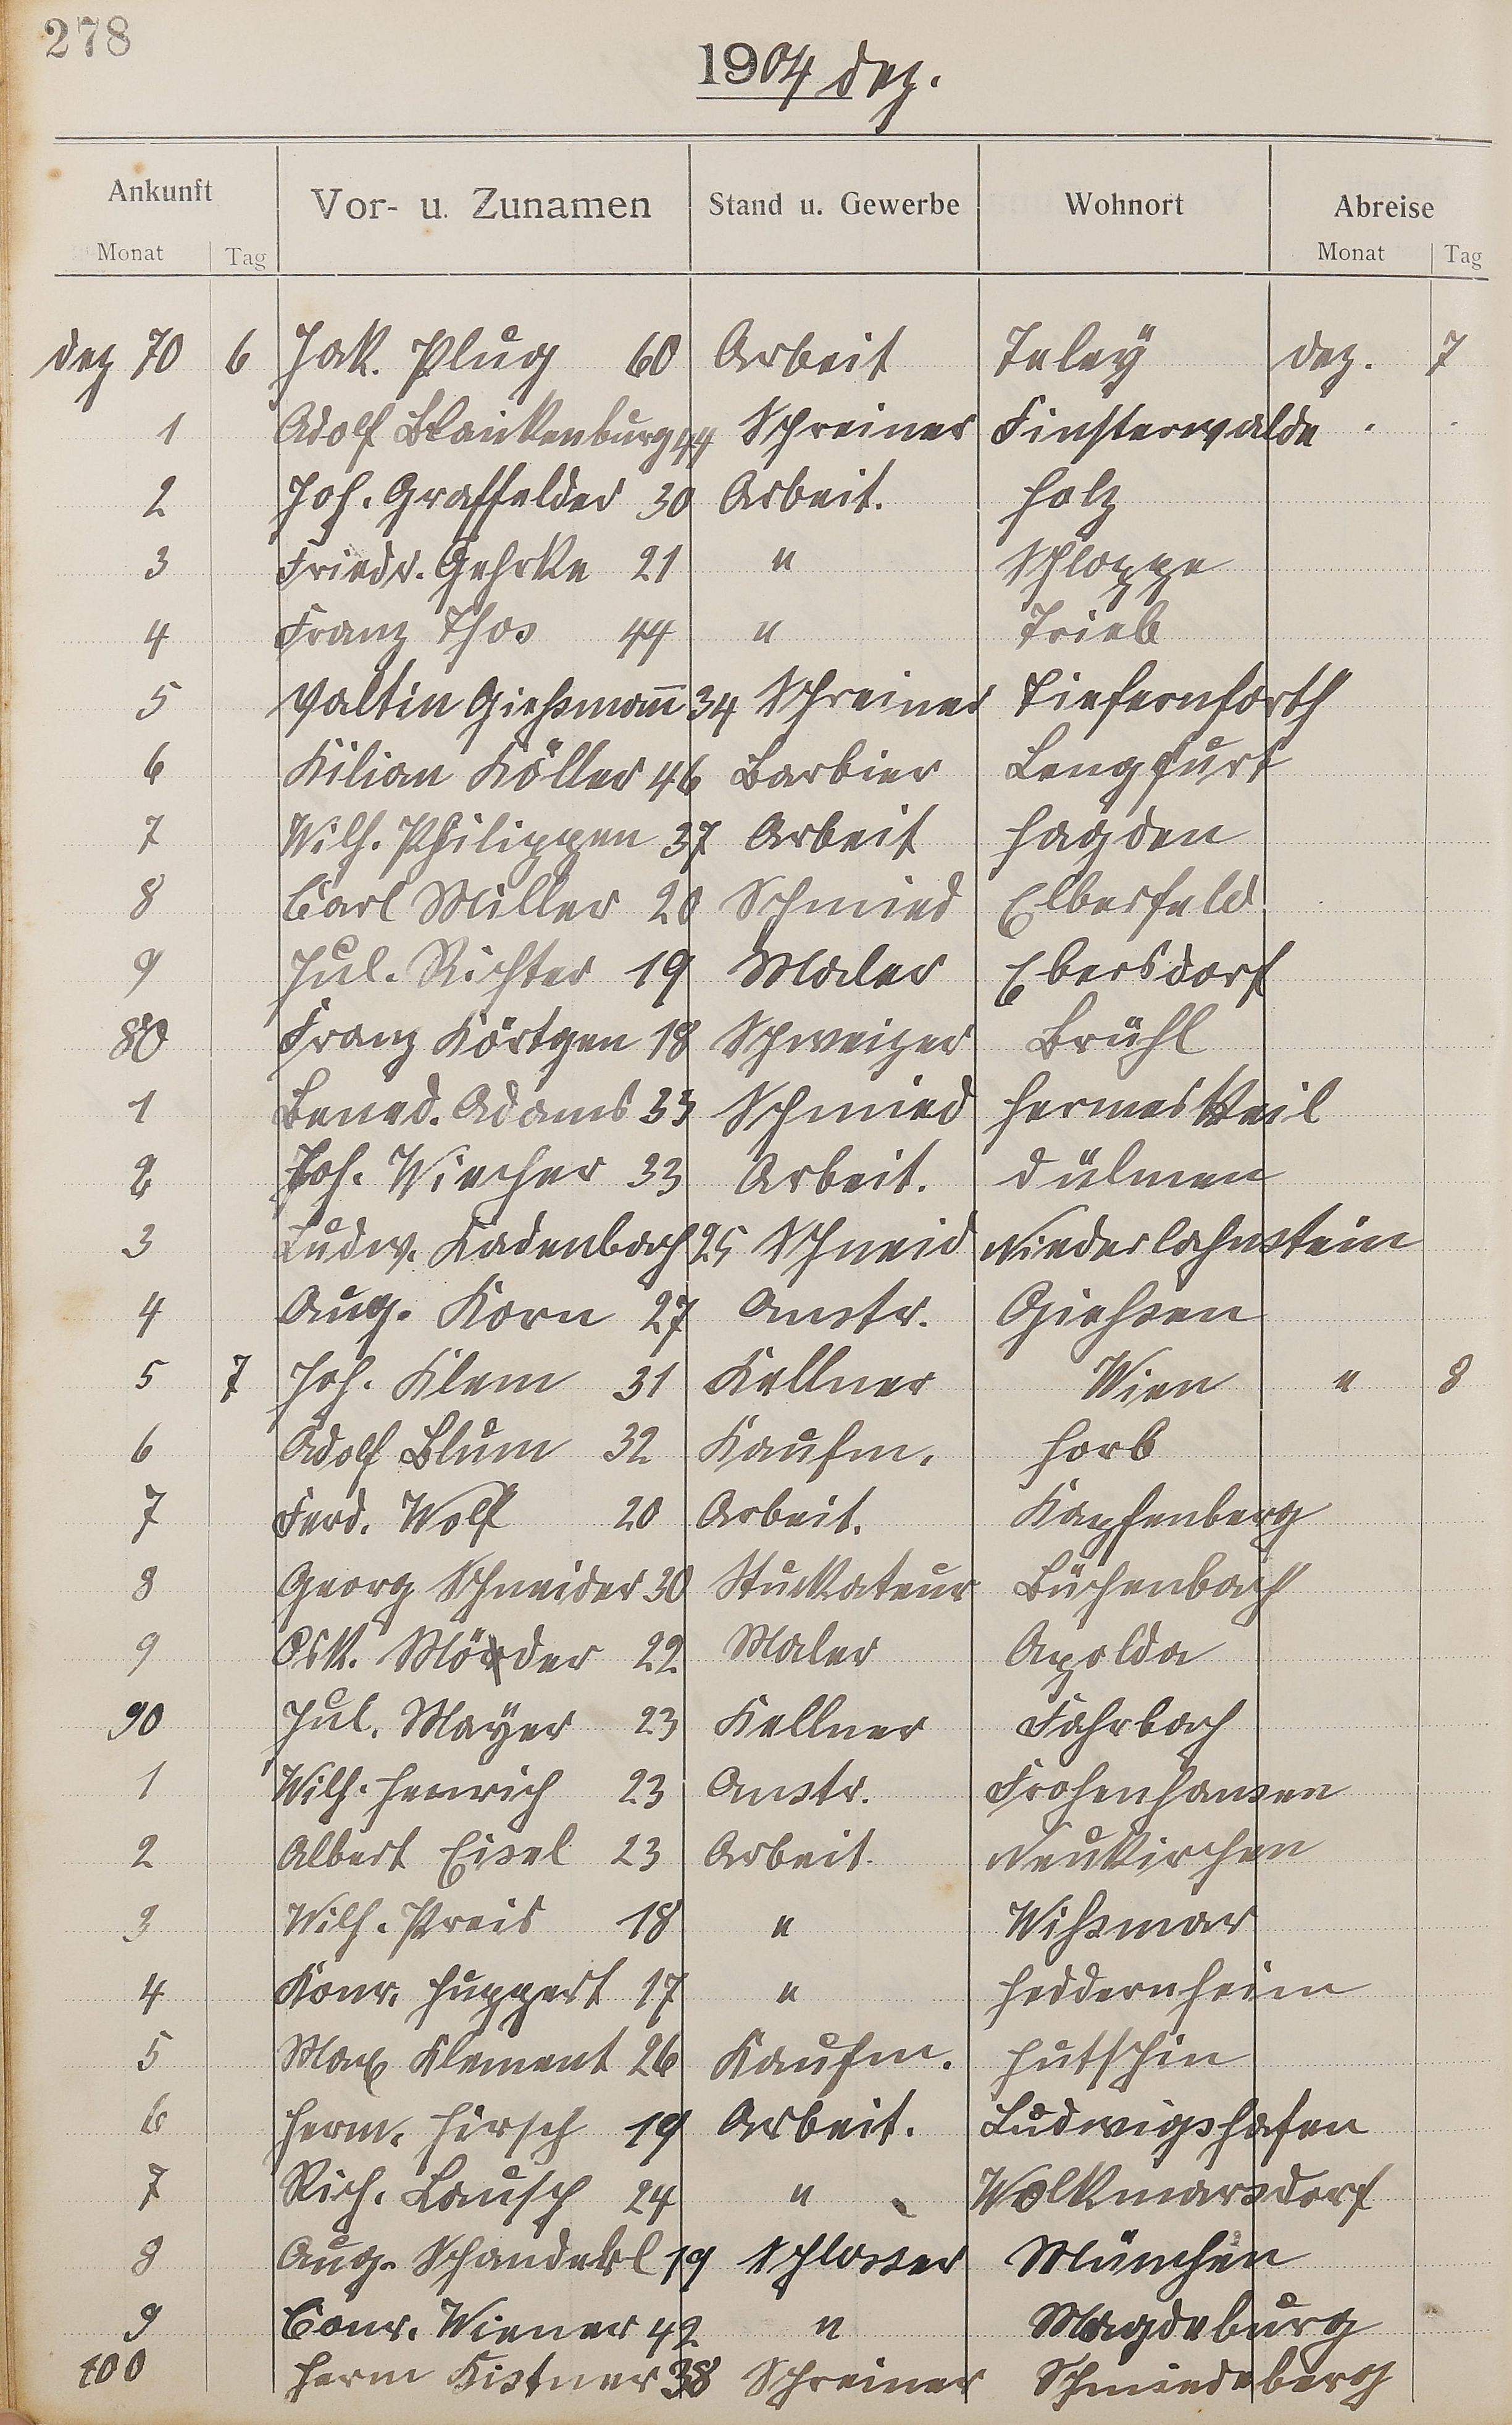 278
1904 Dez.
Ankunft Vor- u. Zunamen Stand u. Gewerbe Wohnort Abreise
Monat Tag Monat Tag
Dez 70 6 Jak. Plug 60 Arbeit Teley Dez. 7
1 Adolf Blankenburg 44 Schreiner Finsterwalde " "
2 Joh. Graffelder 30 Arbeit. Holz
3 Friedr. Gehrke 21 " Schloppe
4 Franz Thos 44 " Trieb
5 Valtin Gießmann 34 Schreiner Tiefernforth
6 Kilian Köller 46 Barbier Lengfurt
7 Wilh. Philippen 37 Arbeit Hagden
8 Carl Müller 20 Schmied Elberfeld
9 Jul. Richter 19 Maler Ebersdorf
80 Franz Körtgen 18 Schweizer Brühl
1 Bened. Adams 33 Schmied Hermeskeil
2 Joh. Wiecher 33 Arbeit. Dülmen
3 Ludw. Kadenbach 25 Schneid Niederlahnstein
4 Aug. Korn 27 Anstr. Gießen
5 7 Joh. Klem 31 Kellner Wien " 8
6 Adolf Blum 32 Kaufm. Horb
7 Ferd. Wolf 20 Arbeit. Kapfenberg
8 Georg Schneider 30 Stuckateur Büchenbach
9 Osk. Möder 22 Maler Apolda
90 Jul. Mayer 23 Kellner Fahrbach
1 Wilh. Henrich 23 Anstr. Frohenhausen
2 Albert Eisel 23 Arbeit. Neukirchen
3 Wilh. Preis 18 " Wißmar
4 Konr. Huppert 17 " Heddernheim
5 Max Klement 26 Kaufm. Hutschin
6 Herm. Hirsch 19 Arbeit. Ludwigshafen
7 Rich. Lausch 24 " Wolkmarsdorf
8 Aug. Schandekl 19 Schlosser München
9 Conr. Wiener 42 " Magdeburg
100 Herm Kistner 38 Schreiner Schmiedeberg